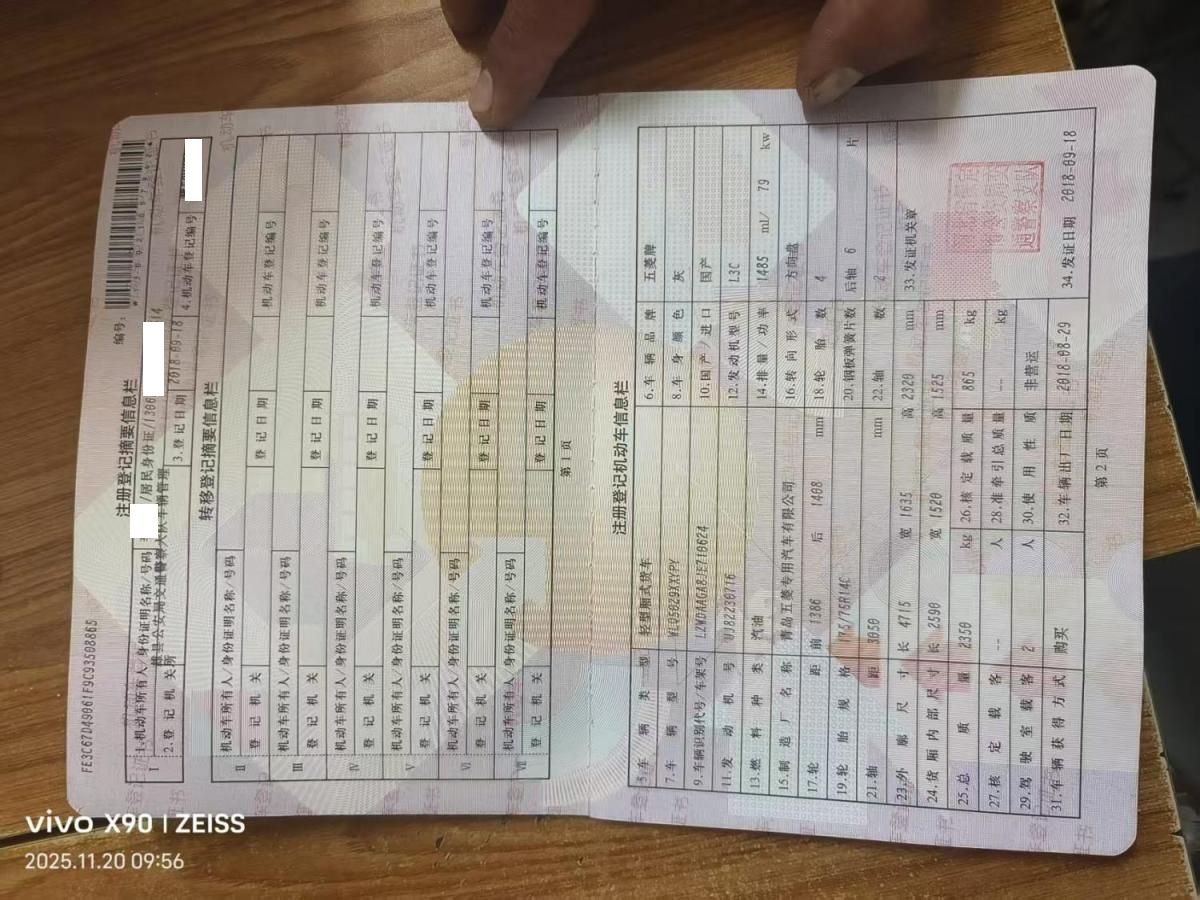 FE3C67D49061F9C93508865
编号：
注册登记摘要信息栏
Ⅰ 1.机动车所有人/身份证明名称/号码 /居民身份证/1306 14
2.登记机关 县公安局交通警察大队车辆管理所 3.登记日期 2018-09-18 4.机动车登记编号
转移登记摘要信息栏
Ⅱ 机动车所有人/身份证明名称/号码
登记机关 登记日期 机动车登记编号
Ⅲ 机动车所有人/身份证明名称/号码
登记机关 登记日期 机动车登记编号
Ⅳ 机动车所有人/身份证明名称/号码
登记机关 登记日期 机动车登记编号
Ⅴ 机动车所有人/身份证明名称/号码
登记机关 登记日期 机动车登记编号
Ⅵ 机动车所有人/身份证明名称/号码
登记机关 登记日期 机动车登记编号
Ⅶ 机动车所有人/身份证明名称/号码
登记机关 登记日期 机动车登记编号
第 1 页
注册登记机动车信息栏
5.车辆类型 轻型厢式货车 6.车辆品牌 五菱牌
7.车辆型号 WLQ5029XXYPY 8.车身颜色 灰
9.车辆识别代号/车架号 LZWDAAGA8JE710624 10.国产/进口 国产
11.发动机号 UJ82230716 12.发动机型号 L3C
13.燃料种类 汽油 14.排量/功率 1485 ml/ 79 kw
15.制造厂名称 青岛五菱专用汽车有限公司 16.转向形式 方向盘
17.轮距 前 1386 后 1408 mm 18.轮胎数 4
19.轮胎规格 175/75R14C 20.钢板弹簧片数 后轴 6 片
21.轴距 3050 mm 22.轴数 2
23.外廓尺寸 长 4715 宽 1635 高 2320 mm 33.发证机关章
24.货厢内部尺寸 长 2590 宽 1520 高 1525 mm
25.总质量 2350 kg 26.核定载质量 865 kg
27.核定载客 -- 人 28.准牵引总质量 -- kg
29.驾驶室载客 2 人 30.使用性质 非营运
31.车辆获得方式 购买 32.车辆出厂日期 2018-08-29 34.发证日期 2018-09-18
第 2 页
vivo X90 | ZEISS
2025.11.20 09:56